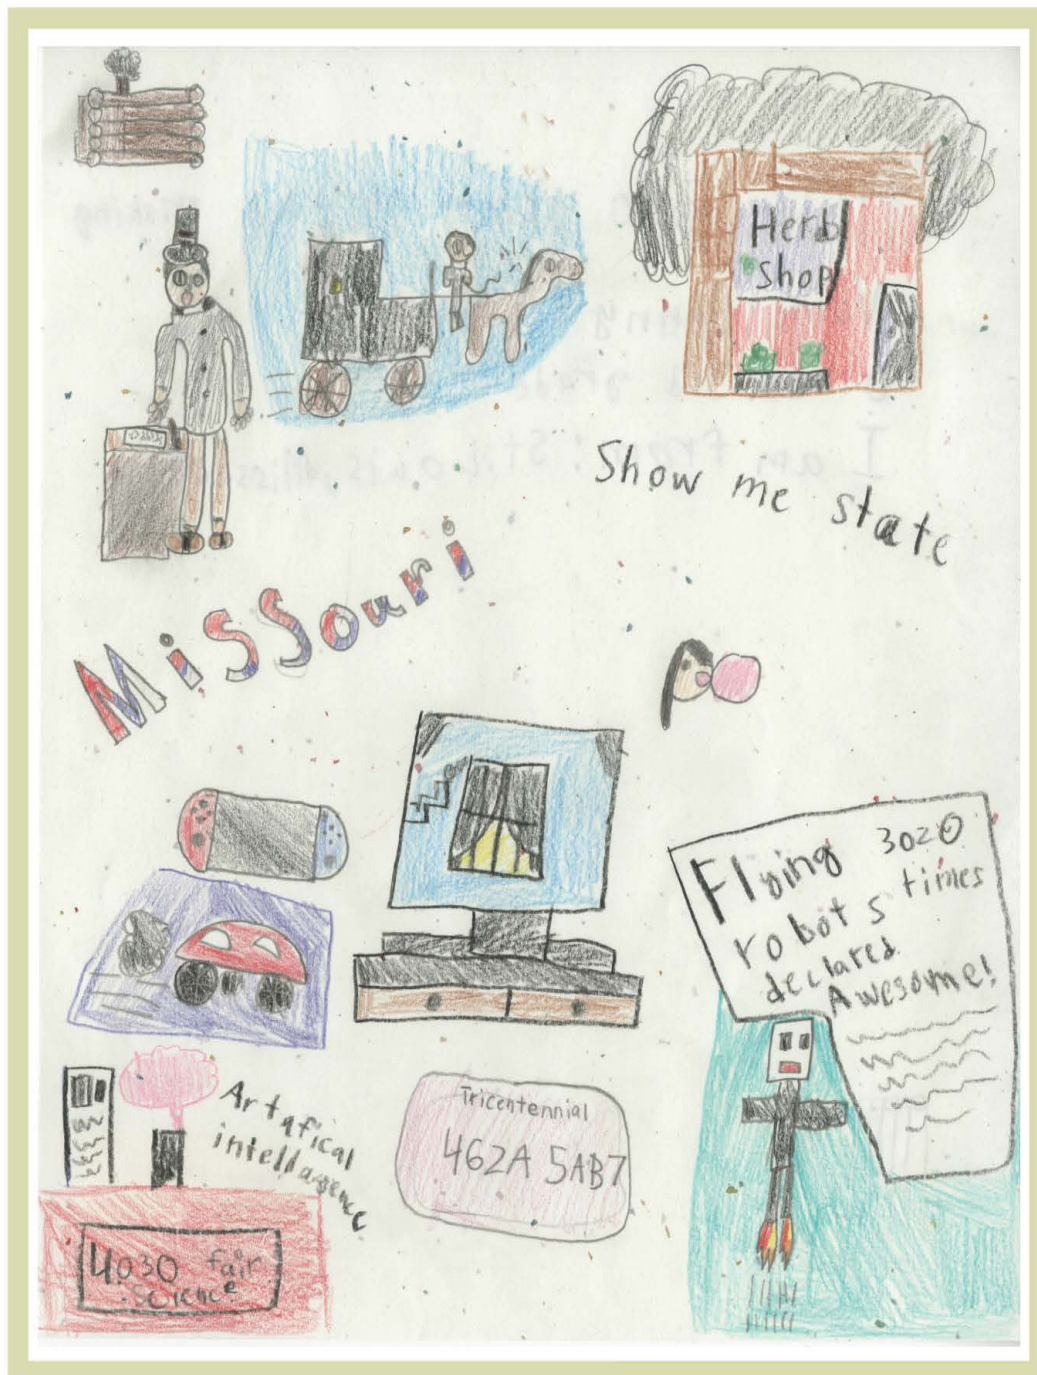 Herb
shop
Show me state
Missouri
Flying 3020
robots times
declared
Awesome!
Artafical
intellagence
Tricentennial
462A 5AB7
4030 fair
science
I am from: St. Louis, Miss